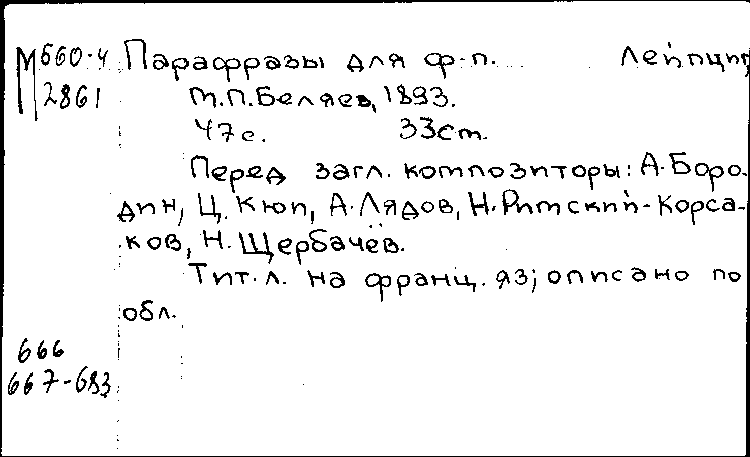 М 660-4 Парафразы для ф-п. Лейпциг,
2861 М.П.Беляев, 1893.
47с. 33cm.
Перед загл. композиторы: А. Боро-
дин, Ц. Кюи, А. Лядов, Н. Римский-Корса-
ков, Н. Щербачёв.
Тит. л. на франц. яз; описано по
обл.
666
667-683